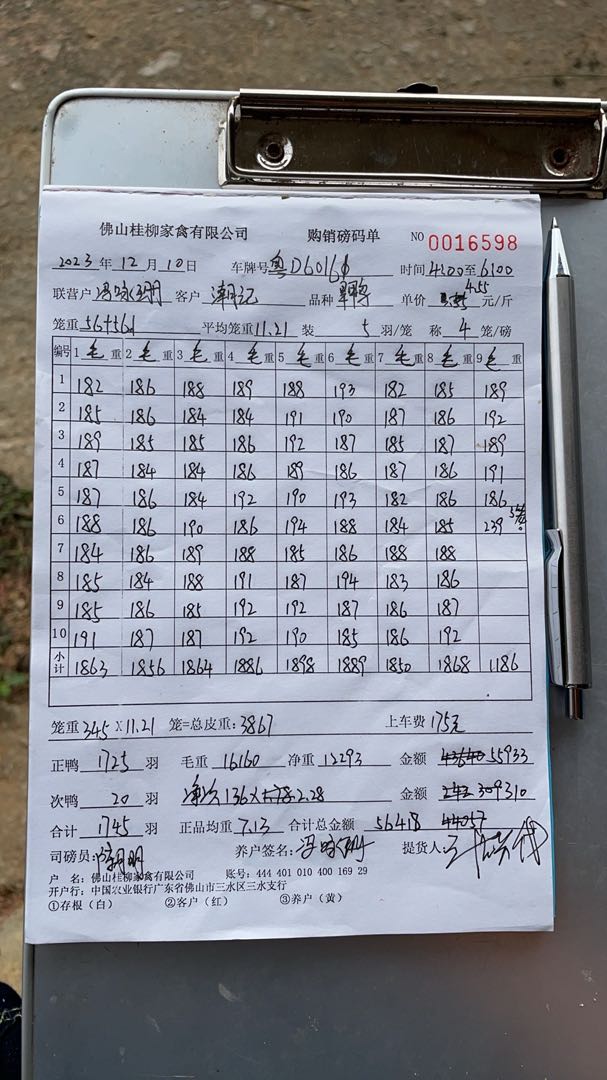 佛山桂柳家禽有限公司 购销磅码单 NO 0016598
2023年12月10日 车牌号 粤D60166 时间4:00至6:00
联营户 客户 潮记 品种 单价 4.55 元/斤
笼重 平均笼重11.21 装 5 羽/笼 称 4 笼/磅
编号 1毛重 2毛重 3毛重 4毛重 5毛重 6毛重 7毛重 8毛重 9毛重
1 182 186 188 189 188 193 182 185 189
2 185 186 184 184 191 190 187 186 192
3 189 185 185 186 192 187 185 187 189
4 187 184 184 186 189 186 187 186 191
5 187 186 184 192 190 193 182 186 186
6 188 186 190 186 194 188 184 185 239
7 184 186 189 188 185 186 188 188
8 185 184 188 191 187 194 183 186
9 185 186 185 192 192 187 186 187
10 191 187 187 192 190 185 186 192
小计 1863 1856 1864 1886 1898 1889 1850 1868 1186
笼重 345 X 11.21 笼=总皮重: 3867 上车费 175元
正鸭 1725 羽 毛重 16160 净重 12293 金额 55933
次鸭 20 羽 136 X 2.28 金额 310
合计 1745 羽 正品均重 7.13 合计总金额 56418
司磅员: 养户签名: 提货人:
户 名: 佛山桂柳家禽有限公司 账号: 444 401 010 400 169 29
开户行: 中国农业银行广东省佛山市三水区三水支行
①存根(白) ②客户(红) ③养户(黄)